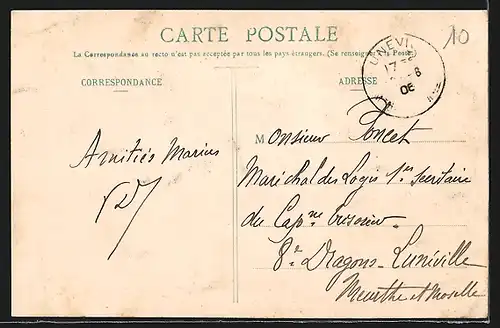 CARTE POSTALE
La Correspondance au recto n'est pas acceptée par tous les pays étrangers. (Se renseigner à la Poste)
CORRESPONDANCE
ADRESSE
LUNÉVILLE
17
8
06
10
Amitiés Marius
Monsieur Poncet
Maréchal des Logis 1er Secrétaire
du Capne Trésorier
8e Dragons - Lunéville
Meurthe et Moselle